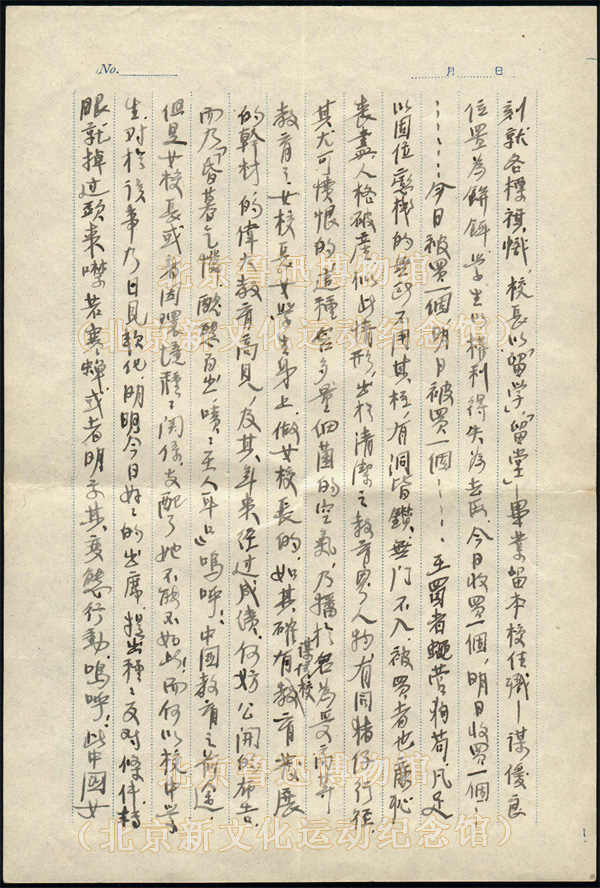 No.
月 日
刻就各標旗幟,校長以「留學」「留堂」—畢業留本校任職—謀優良
位置為餅餌,學生以權利得失為去取,今日收買一個,明日收買一個
……今日被買一個,明日被買一個……至買者蠅營狗苟,凡足
以固位戀棧的無所不用其極,有洞皆鑽,無門不入,被買者也廉恥
喪盡,人格破產。似此情形,出於清潔之教育界人物,有同猪仔行徑,
其尤可憤恨的,這種含多量細菌的空氣,乃播於名為受高等
教育之女校長女學生身上。做女校長的,如其確有謀該校教育發展
的幹材,的偉大教育高見,及其年來經過成績,何妨公開的布告,
而乃「昏暮乞憐,醜態百出,嘖嘖在人耳口」嗚呼,中國教育之前途,
但是女校長或者因環境種〻關係,支配了她不能不如此!而何以校中學
生,對於該事乃日見軟化,明明今日好〻的出席,提出種〻反對條件,轉
眼就掉過頭來噤若寒蟬,或者明示其變態行動,嗚呼!此中國女
北京鲁迅博物馆
(北京新文化运动纪念馆)
北京鲁迅博物馆
(北京新文化运动纪念馆)